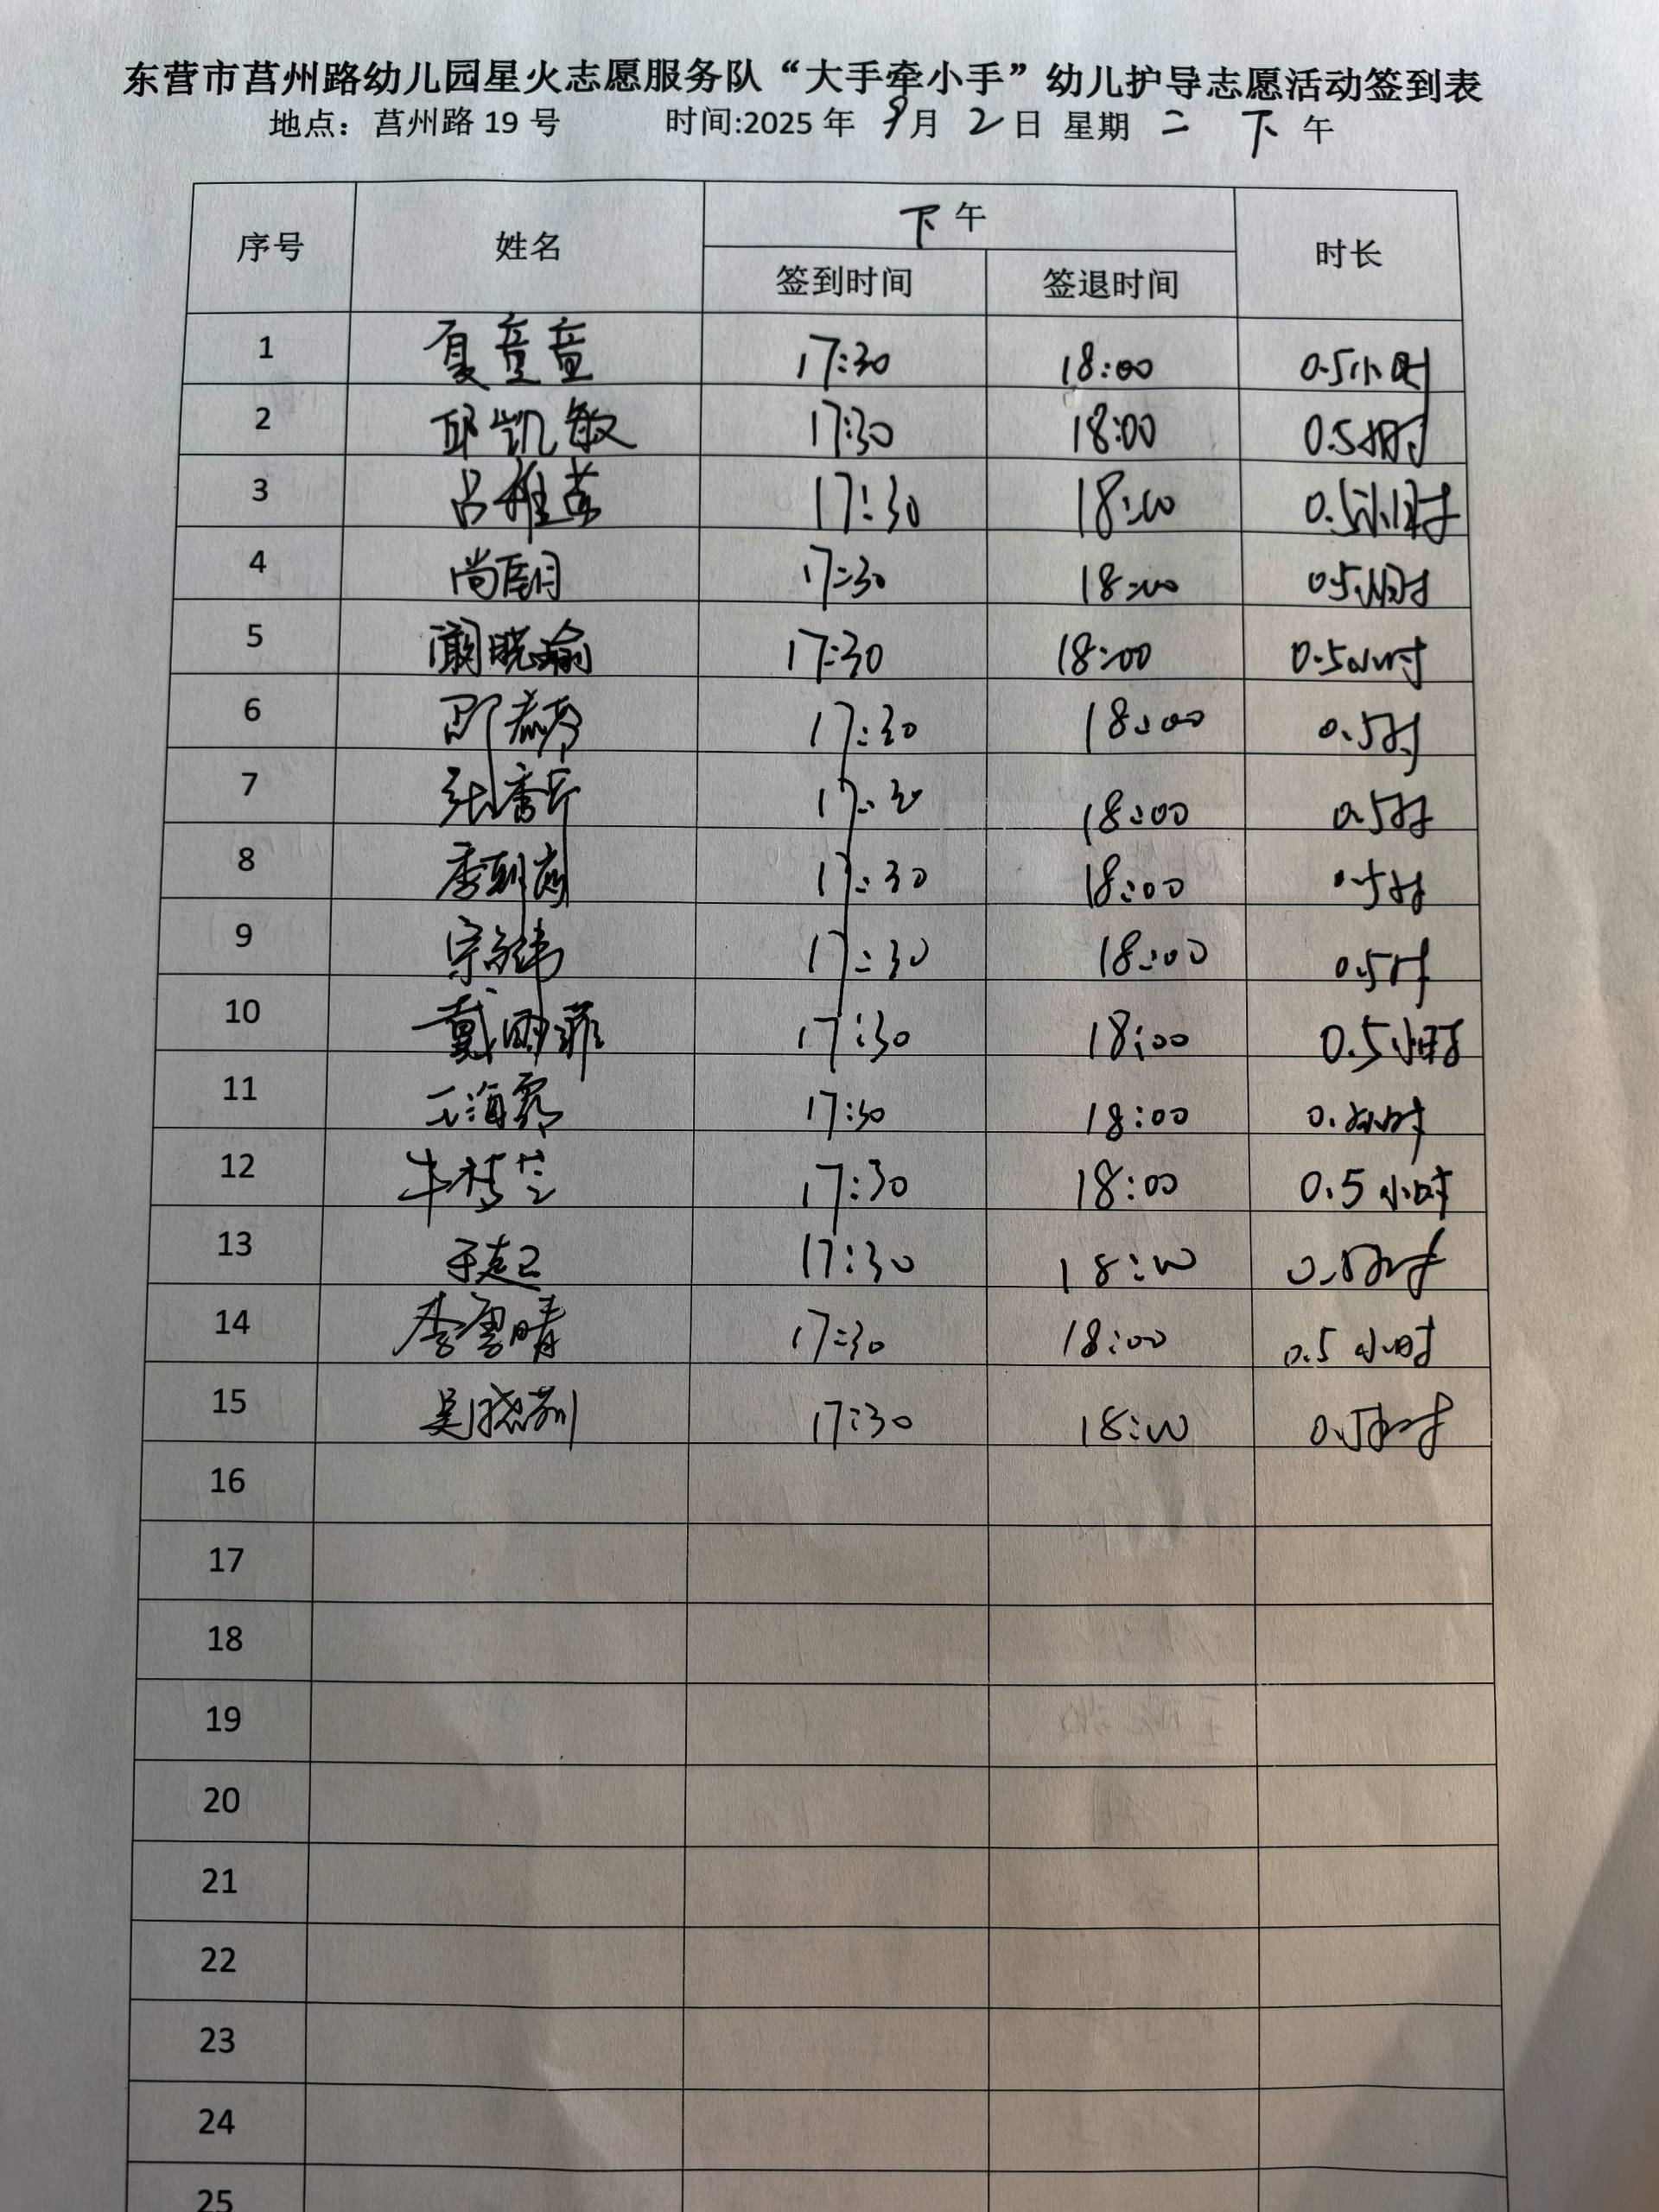 东营市莒州路幼儿园星火志愿服务队“大手牵小手”幼儿护导志愿活动签到表
地点：莒州路 19 号 时间:2025 年 9月 2日 星期 二 下 午
序号 姓名 下午 时长
签到时间 签退时间
1 夏童童 17:30 18:00 0.5小时
2 邱凯敏 17:30 18:00 0.5小时
3 吕雅 17:30 18:00 0.5小时
4 尚 17:30 18:00 0.5小时
5 阚晓瑜 17:30 18:00 0.5小时
6 17:30 18:00 0.5时
7 张 17:30 18:00 0.5时
8 李 17:30 18:00 0.5时
9 宗 17:30 18:00 0.5时
10 戴雨菲 17:30 18:00 0.5小时
11 王海霞 17:30 18:00 0.5小时
12 牛梦兰 17:30 18:00 0.5小时
13 17:30 18:00 0.5小时
14 李雪晴 17:30 18:00 0.5小时
15 吴晓莉 17:30 18:00 0.5小时
16
17
18
19
20
21
22
23
24
25